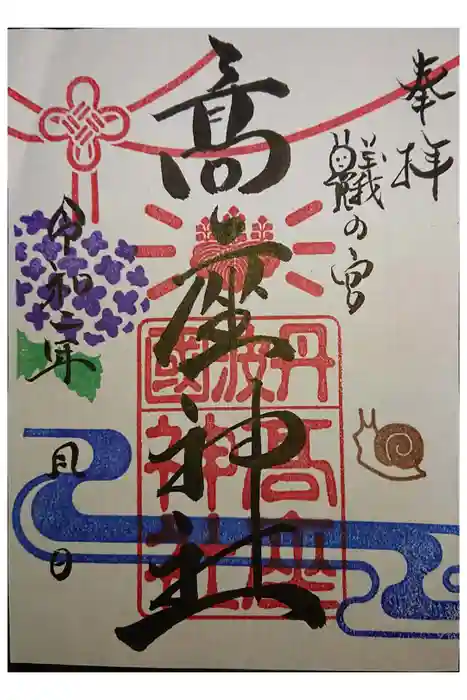 奉拝
蟻の宮
高座神社
丹波國
高座
神社
令和二年 月 日